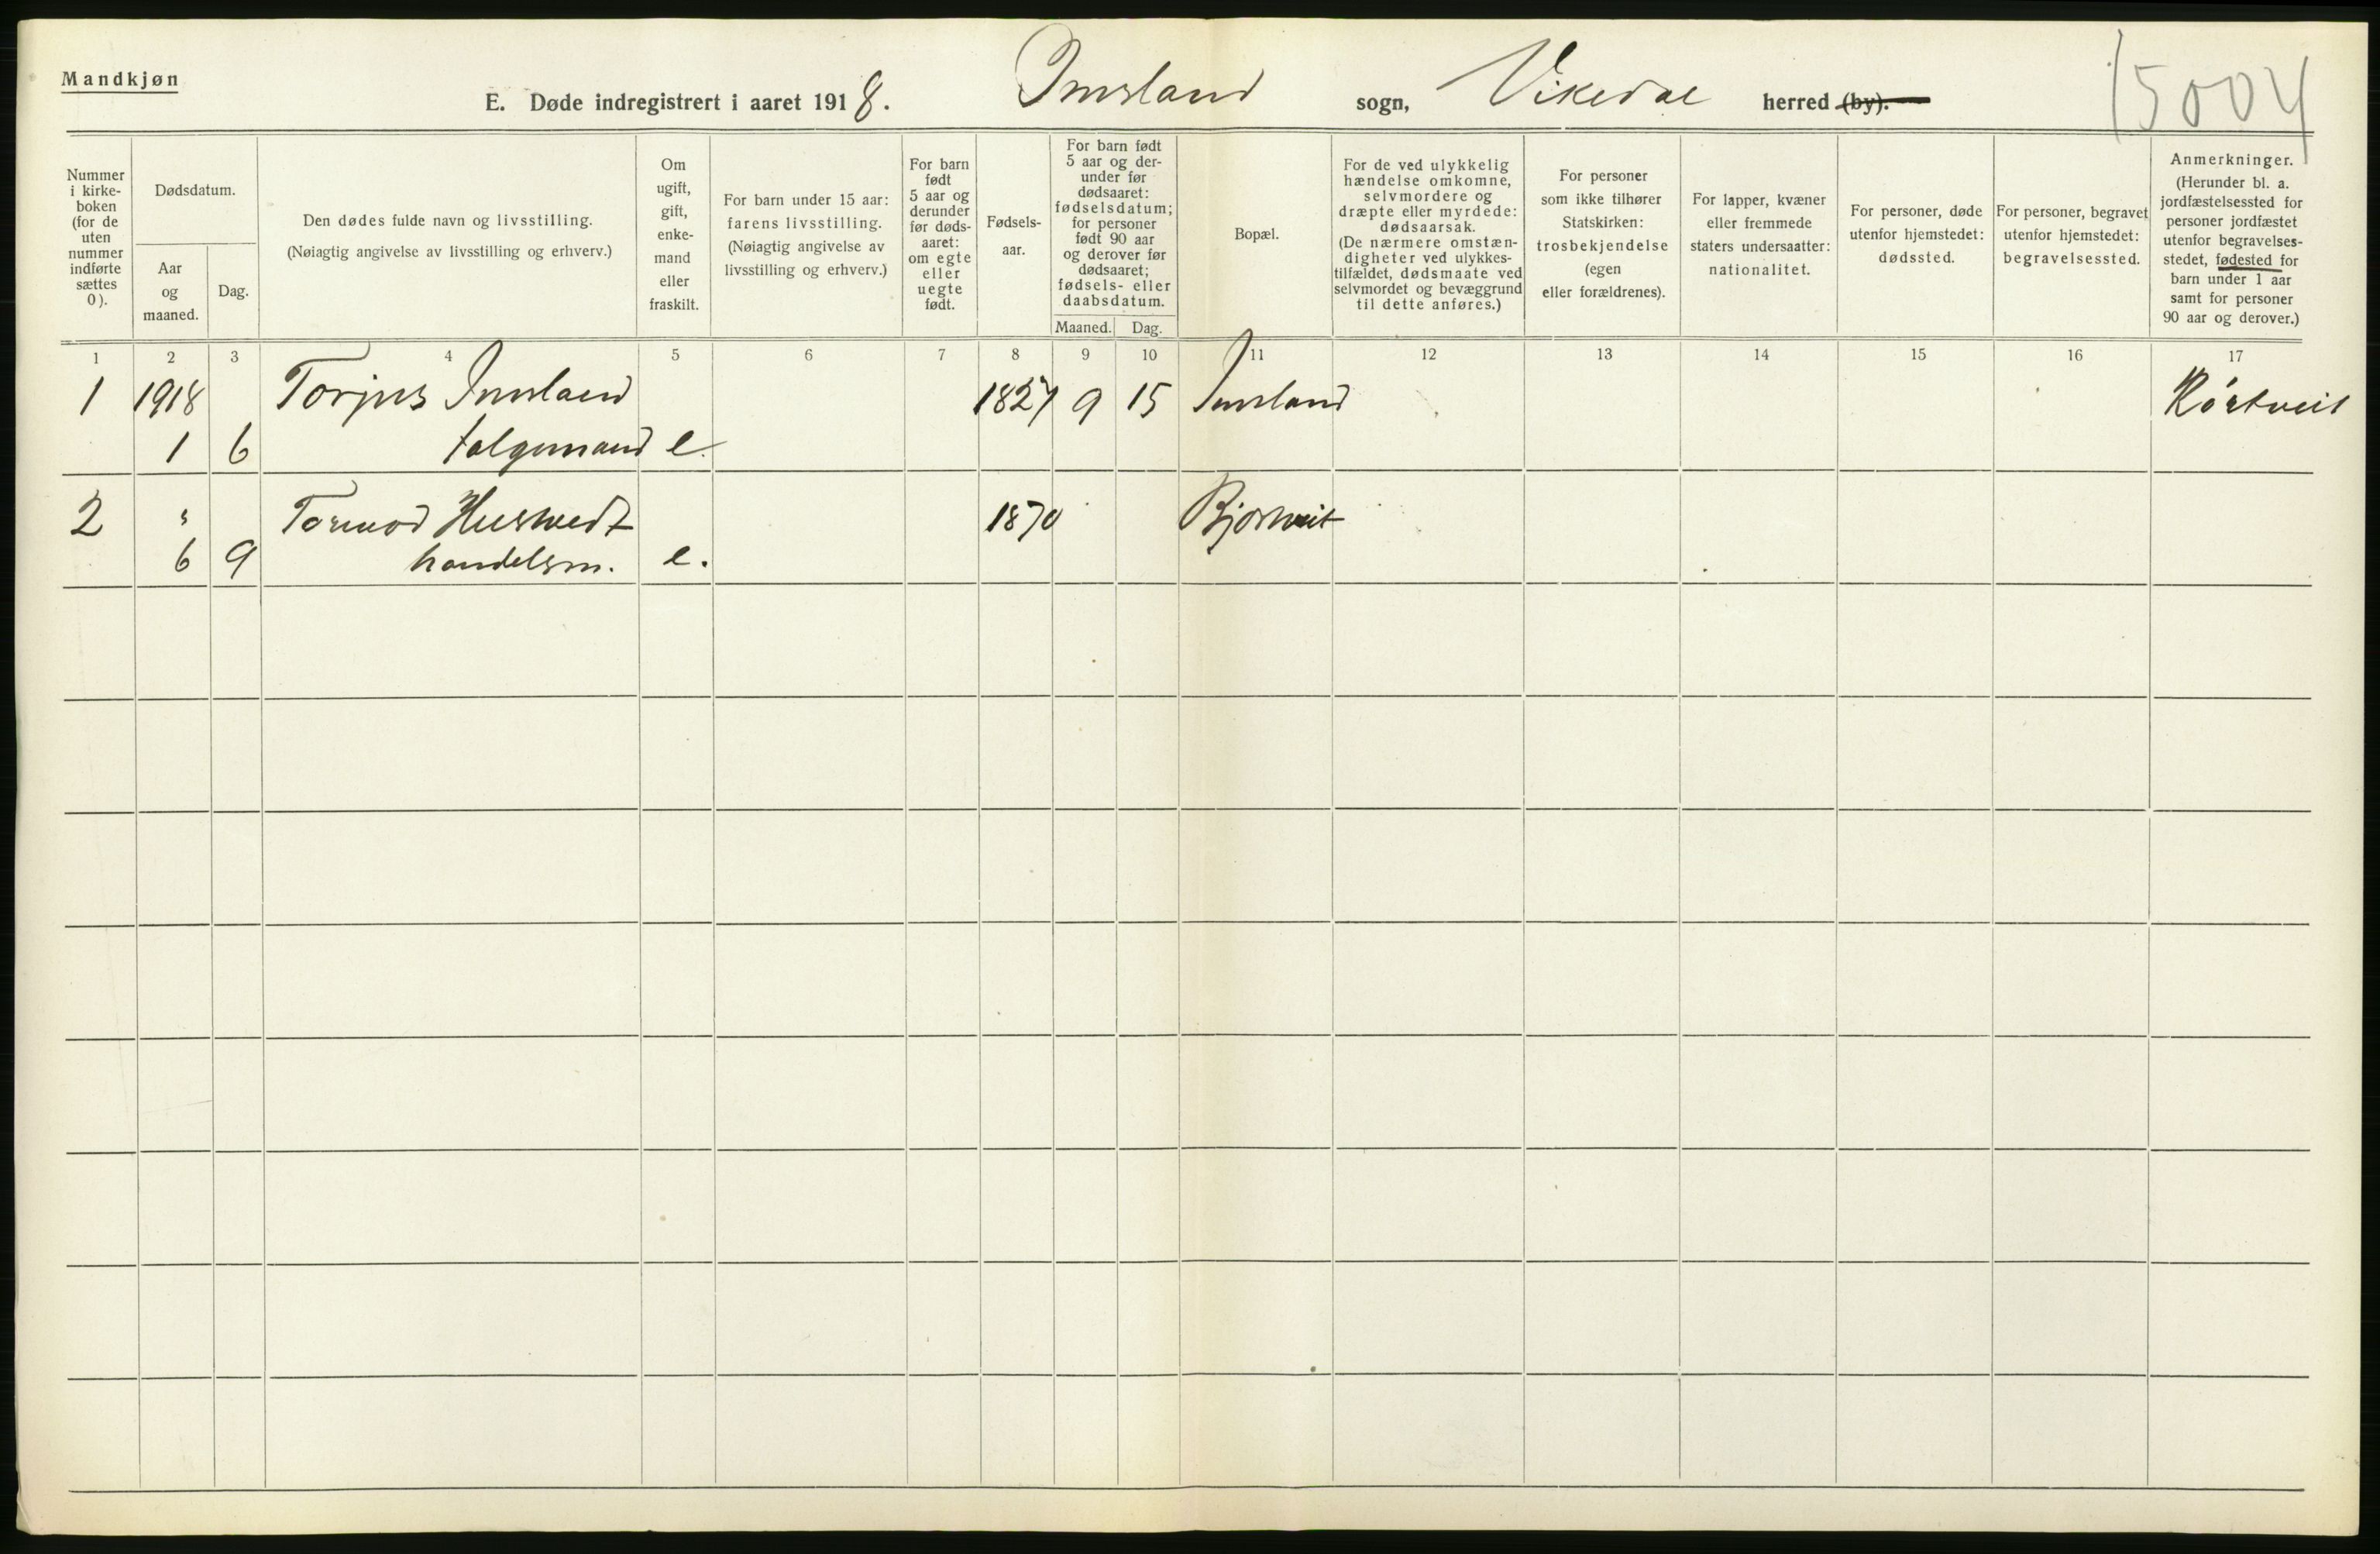 Mandkjøn
E. Døde indregistrert i aaret 1918. Imsland sogn, Vikedal herred (by).
15004
Nummer
i kirke-
boken
(for de
uten
nummer
indførte
sættes
0).
Dødsdatum.
Aar
og
maaned.
Dag.
Den dødes fulde navn og livsstilling.
(Nøiagtig angivelse av livsstilling og erhverv.)
Om
ugift,
gift,
enke-
mand
eller
fraskilt.
For barn under 15 aar:
farens livsstilling.
(Nøiagtig angivelse av
livsstilling og erhverv.)
For barn
født
5 aar og
derunder
før døds-
aaret:
om egte
eller
uegte
født.
Fødsels-
aar.
For barn født
5 aar og der-
under før
dødsaaret:
fødselsdatum;
for personer
født 90 aar
og derover før
dødsaaret;
fødsels- eller
daabsdatum.
Maaned. Dag.
Bopæl.
For de ved ulykkelig
hændelse omkomne,
selvmordere og
dræpte eller myrdede:
dødsaarsak.
(De nærmere omstæn-
digheter ved ulykkes-
tilfældet, dødsmaate ved
selvmordet og bevæggrund
til dette anføres.)
For personer
som ikke tilhører
Statskirken:
trosbekjendelse
(egen
eller forældrenes).
For lapper, kvæner
eller fremmede
staters undersaatter:
nationalitet.
For personer, døde
utenfor hjemstedet:
dødssted.
For personer, begravet
utenfor hjemstedet:
begravelsessted.
Anmerkninger.
(Herunder bl. a.
jordfæstelsessted for
personer jordfæstet
utenfor begravelses-
stedet, fødested for
barn under 1 aar
samt for personer
90 aar og derover.)
1 2 3 4 5 6 7 8 9 10 11 12 13 14 15 16 17
1 1918 Torjus Imsland 1827 9 15 Imsland Røstveit
1 6 folgemand e.
2 " Tormod Hustvedt 1870 Bjortveit
6 9 handelsm. e.